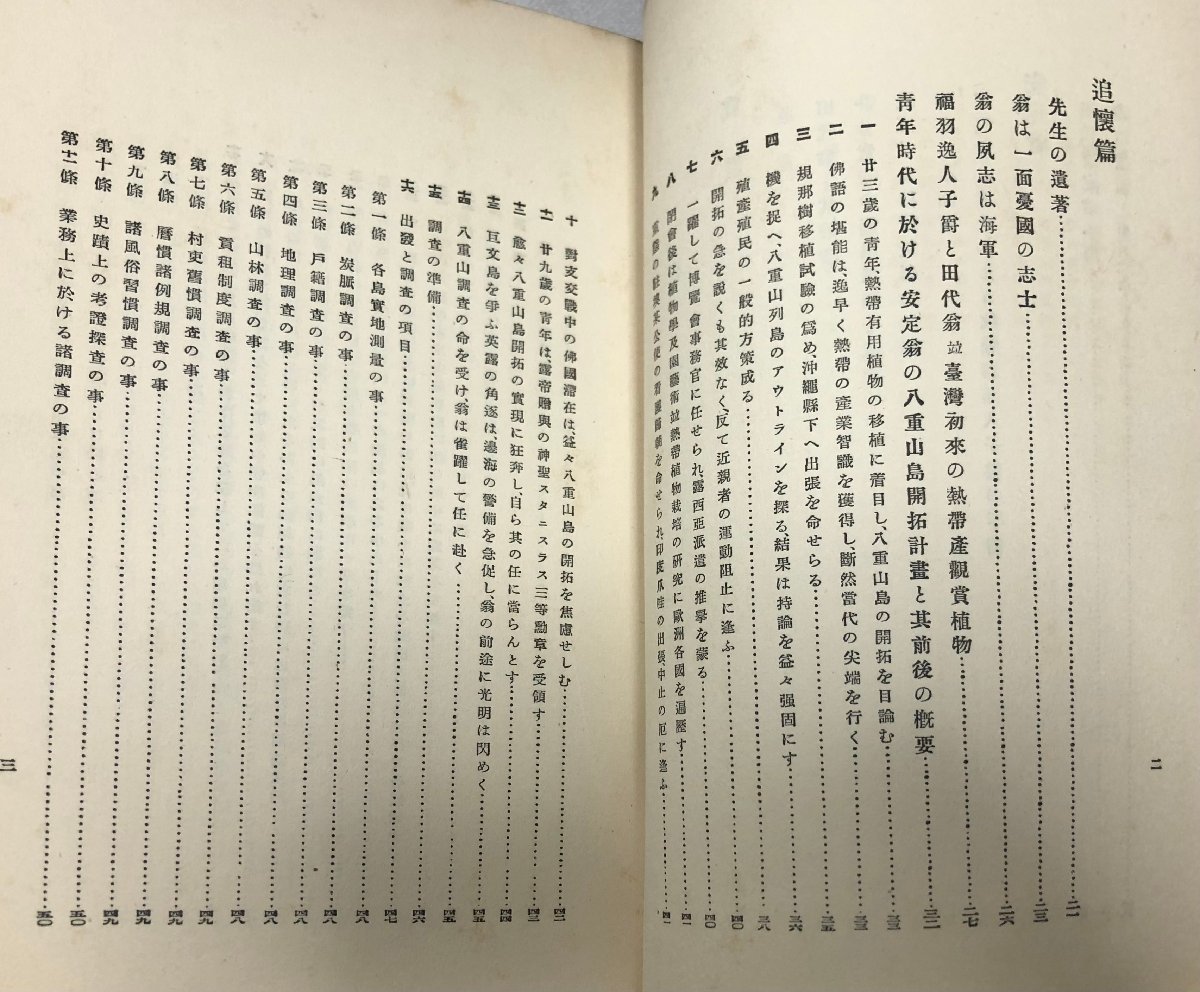 追懷篇
先生の遺著……二一
翁は一面憂國の志士……二三
翁の夙志は海軍……二六
福羽逸人子爵と田代翁並臺灣初來の熱帶產觀賞植物……二七
靑年時代に於ける安定翁の八重山島開拓計畫と其前後の槪要……三二
一 廿三歲の靑年、熱帶有用植物の移植に着目し、八重山島の開拓を目論む……三三
二 佛語の堪能は、逸早く熱帶の產業智識を獲得し、斷然當代の尖端を行く……三三
三 規那樹移植試驗の爲め、沖繩縣下へ出張を命せらる……三五
四 機を捉へ、八重山列島のアウトラインを探る、結果は持論を益々强固にす……三六
五 殖產殖民の一般的方策成る……三八
六 開拓の急を說くも其效なく、反て近親者の運動阻止に逢ふ……四〇
七 一躍して博覽會事務官に任せられ、露西亞派遣の推擧を蒙る……四〇
八 閉會後は植物學及園藝術並熱帶植物栽培の研究に歐洲各國を遍歷す……四一
九 の看護を命せられ、印度爪哇の出張、中止の厄に逢ふ……四一
二
十 對支交戰中の佛國滯在は、益々八重山島の開拓を焦慮せしむ……四二
十一 廿九歲の靑年は、露帝贈與の神聖スタニスラス三等勳章を受領す……四三
十二 愈々八重山島開拓の實現に狂奔し、自ら其の任に當らんとす……四四
十三 巨文島を爭ふ英露の角逐は邊海の警備を急促し、翁の前途に光明は閃めく……四五
十四 八重山調査の命を受け、翁は雀躍して任に赴く……四五
十五 調査の準備……四六
十六 出發と調査の項目……四七
第一條 各島實地測量の事……四八
第二條 炭脈調査の事……四八
第三條 戶籍調査の事……四八
第四條 地理調査の事……四八
第五條 山林調査の事……四八
第六條 貢租制度調査の事……四九
第七條 村吏舊慣調査の事……四九
第八條 曆慣諸例規調査の事……四九
第九條 諸風俗習慣調査の事……四九
第十條 史蹟上の考證探査の事……五〇
第十一條 業務上に於ける諸調査の事……五〇
三